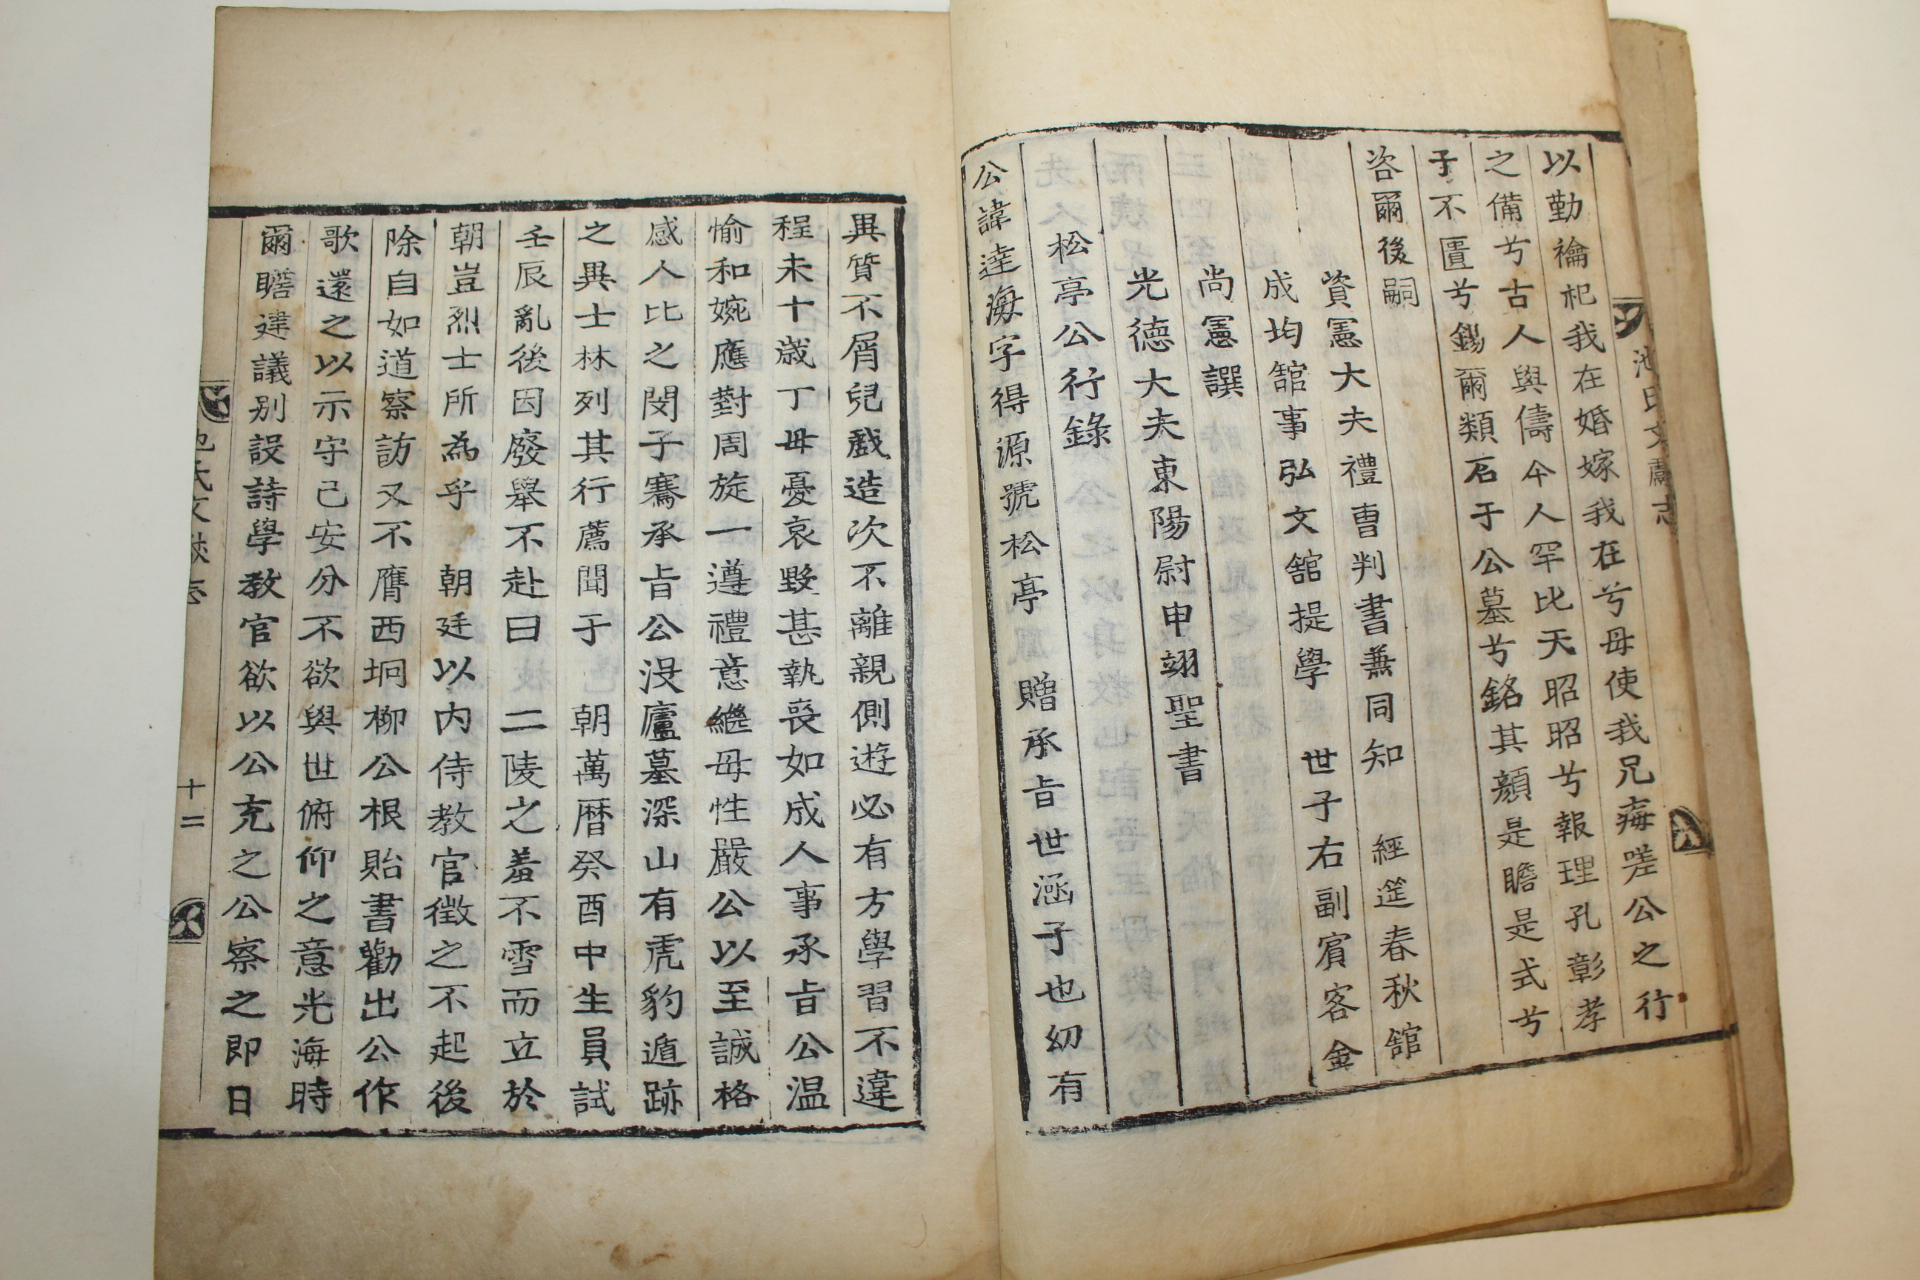 池氏文獻志
以勤禴祀我在婚嫁我在兮母使我兄痗嗟公之行
之備兮古人與儔今人罕比天昭昭兮報理孔彰孝
子不匱兮錫爾類石于公墓兮銘其顔是瞻是式兮
咨爾後嗣
資憲大夫禮曹判書兼同知 經筵春秋館
成均館事弘文館提學 世子右副賓客金
尚憲譔
光德大夫東陽尉申翊聖書
松亭公行錄
公諱達海字得源號松亭 贈承旨世涵子也幼有
異質不屑兒戲造次不離親側遊必有方學習不違
程未十歲丁母憂哀毀甚執喪如成人事承旨公温
愉和婉應對周旋一遵禮意繼母性嚴公以至誠格
感人比之閔子騫承旨公沒廬墓深山有虎豹遁跡
之異士林列其行薦聞于 朝萬曆癸酉中生員試
壬辰亂後因廢舉不赴曰 二陵之羞不雪而立於
朝豈烈士所為乎 朝廷以内侍教官徵之不起後
除自如道察訪又不膺西坰柳公根貽書勸出公作
歌還之以示守己安分不欲與世俯仰之意光海時
爾瞻違議別設詩學教官欲以公充之公察之即日
池氏文獻志
十二